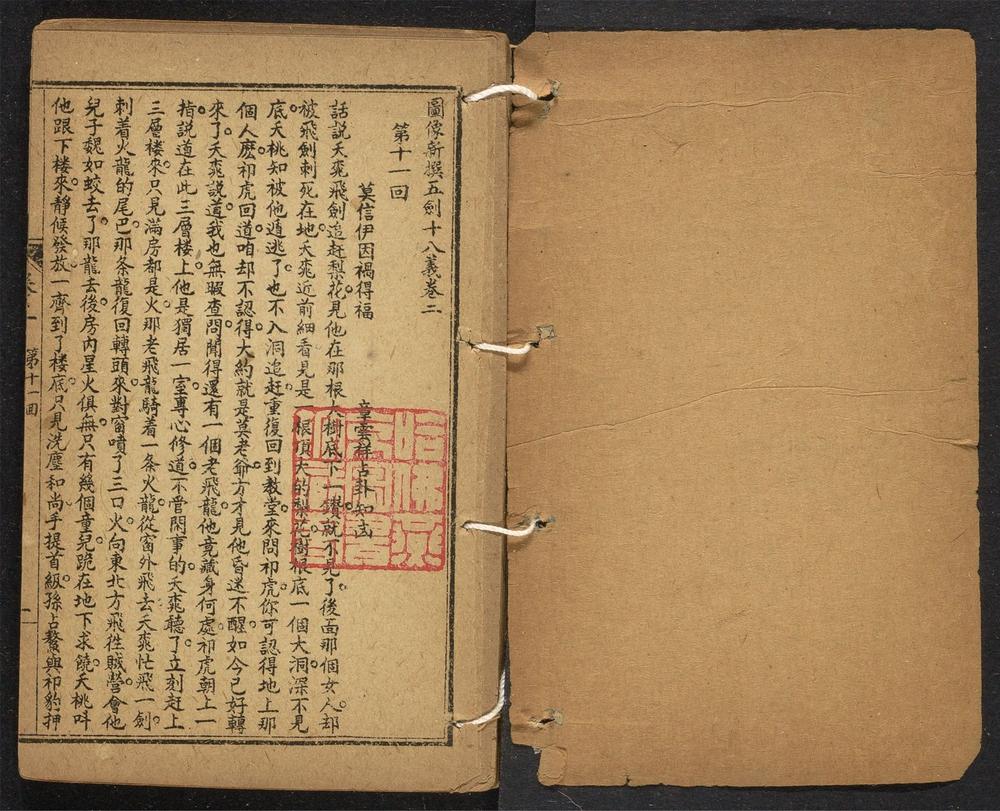 圖像新撰五劍十八義卷二
第十一回
莫信伊因禍得福 章雲祥占卦知
話說夭桃飛劍追赶梨花見他在那根大樹底下一鑽就不見了後面那個女人却
被飛劍刺死在地夭桃近前細看見是一根頂大的梨花樹根底一個大洞深不見
底夭桃知被他遁逃了也不入洞追赶重復回到教堂來問祁虎你可認得地上那
個人麽祁虎回道咱却不認得大約就是莫老爺方才見他昏迷不醒如今已好轉
來了夭桃說道我也無暇查問聞得還有一個老飛龍他竟藏身何處祁虎朝上一
指說道在此三層楼上他是獨居一室專心修道不管閑事的夭桃聽了立刻赶上
三層楼來只見滿房都是火那老飛龍騎着一条火龍從窗外飛去夭桃忙飛一劍
刺着火龍的尾巴那条龍復回轉頭來對窗噴了三口火向東北方飛徃賊營會他
兒子魏如蛟去了那龍去後房内星火俱無只有幾個童兒跪在地下求饒夭桃呌
他跟下楼來靜候發放一齊到了楼底只見洗塵和尚手提首級孫占鰲與祁豹押
第十一回
一